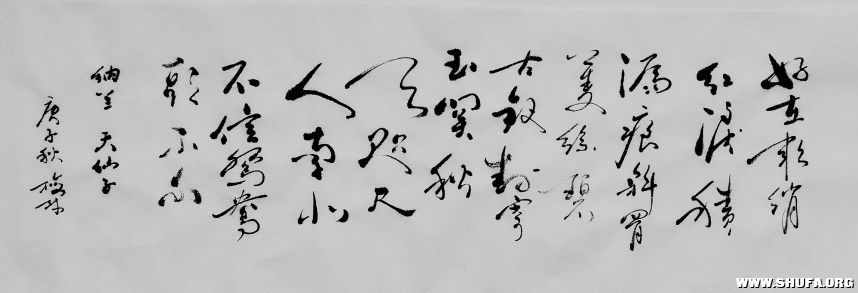 好在軟綃
紅淚積
漏痕斜罥
菱絲碧
古釵封寄
玉關秋
天咫尺
人南北
不信鴛鴦
頭不白
納兰 天仙子
庚子秋
WWW.SHUFA.ORG